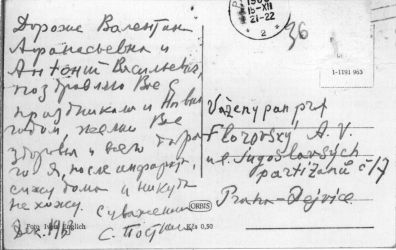 Дорогие Валентина
Афанасьевна и
Антоний Васильевич,
поздравляю Вас с
праздниками и Новым
годом, желаю Вам
здоровья и всего доброго.
Я, после инфаркта,
сижу дома и никуда
не хожу. С уважением
С.
Дек. 19
15-XII
21-22
36
1-1191 963
Vážený pan prof
Florovský, A. V.
ul. Jugoslavských
partizánů č 17
Praha-Dejvice
Foto Englich
ORBIS
Kčs 0,50